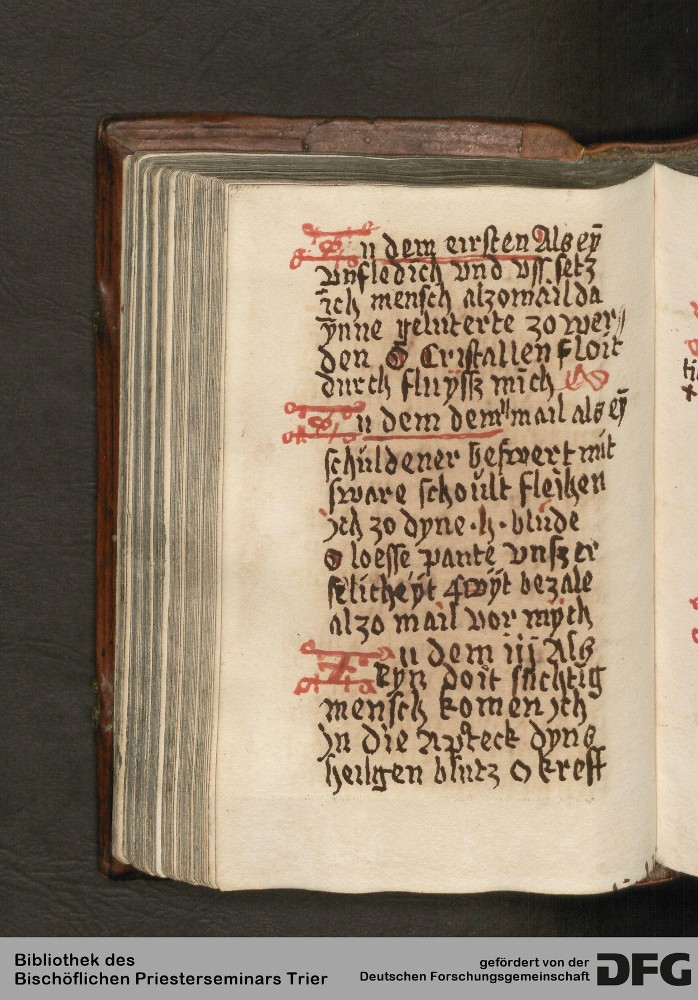 Zu dem eirsten Als eȳ
vnfledich vnd vss setz
ich mensch alzomail da
ynne geluterte zo wer//
den O Cristallen floit
durch fluÿssz mich
Zu dem dem ij mail als eȳ
schuldener beswert mit
sware schoult fleihen
ich zo dyne · h · blude
O loesse pante vnszer
selicheÿt qwÿt bezale
alzo mail vor mych
Zu dem iij Als
Eyn doit suchtig
mensch komen ich
In die Apteck dyns
heilgen blutz O kreft
Bibliothek des
Bischöflichen Priesterseminars Trier
gefördert von der
Deutschen Forschungsgemeinschaft DFG